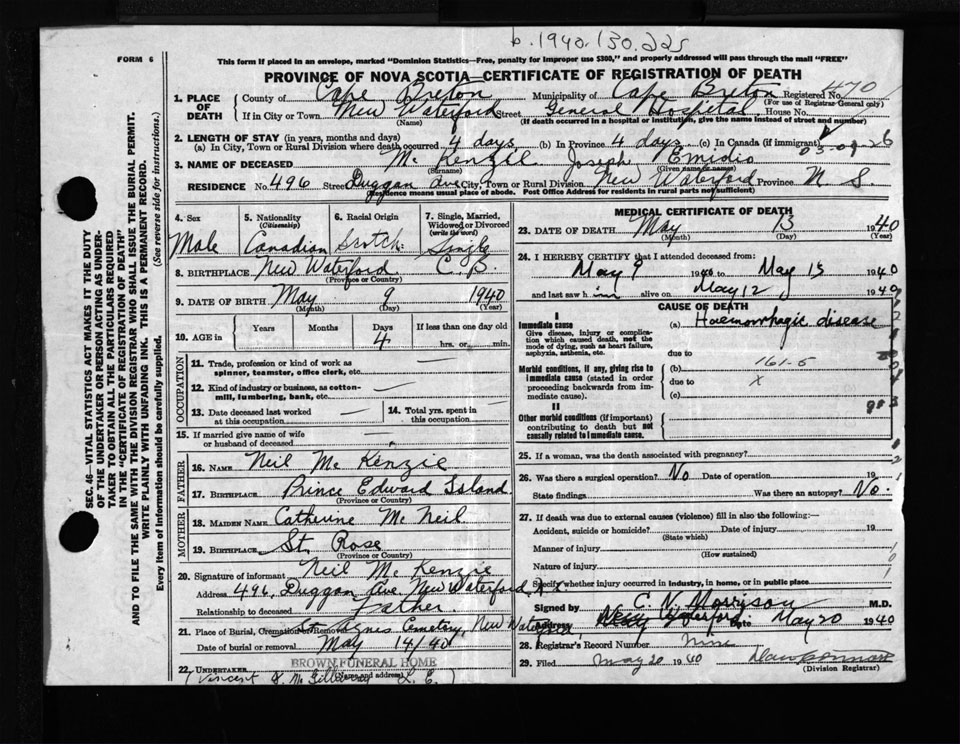 b. 1940. 130. 225
FORM 6
This form if placed in an envelope, marked "Dominion Statistics—Free, penalty for improper use $300," and properly addressed will pass through the mail "FREE"
PROVINCE OF NOVA SCOTIA—CERTIFICATE OF REGISTRATION OF DEATH
1. PLACE OF DEATH County of Cape Breton Municipality of Cape Breton Registered No. 470
(For use of Registrar-General only)
If in City or Town New Waterford Street General Hospital House No.
(Name) (If death occurred in a hospital or institution, give the name instead of street and number)
2. LENGTH OF STAY (in years, months and days)
(a) In City, Town or Rural Division where death occurred 4 days (b) In Province 4 days (c) In Canada (if immigrant)
3. NAME OF DECEASED Mc Kenzie Joseph Emidio
(Surname) (Given name or names)
RESIDENCE No. 496 Street Duggan Ave City, Town or Rural Division New Waterford Province N. S.
(Residence means usual place of abode. Post Office Address for residents in rural parts not sufficient)
4. Sex
Male
5. Nationality
(Citizenship)
Canadian
6. Racial Origin
Scotch
7. Single, Married, Widowed or Divorced
(write the word)
Single
8. BIRTHPLACE New Waterford C. B.
(Province or Country)
9. DATE OF BIRTH May 9 1940
(Month) (Day) (Year)
10. AGE in Years Months Days If less than one day old
4 hrs. or min.
OCCUPATION
11. Trade, profession or kind of work as spinner, teamster, office clerk, etc. —
12. Kind of industry or business, as cotton-mill, lumbering, bank, etc. —
13. Date deceased last worked at this occupation —
14. Total yrs. spent in this occupation —
15. If married give name of wife or husband of deceased —
FATHER
16. NAME Neil Mc Kenzie
17. BIRTHPLACE Prince Edward Island
(Province or Country)
MOTHER
18. MAIDEN NAME Catherine Mc Neil
19. BIRTHPLACE St. Rose
(Province or Country)
20. Signature of informant Neil Mc Kenzie
Address 496, Duggan Ave. New Waterford, N. S.
Relationship to deceased Father.
21. Place of Burial, Cremation or Removal St. Agnes Cemetery, New Waterford
Date of burial or removal May 14/40
BROWN FUNERAL HOME
22. UNDERTAKER
(Name and address)
MEDICAL CERTIFICATE OF DEATH
23. DATE OF DEATH May 13 1940
(Month) (Day) (Year)
24. I HEREBY CERTIFY that I attended deceased from:
May 9 1940 to May 13 1940
and last saw h im alive on May 12 1940
CAUSE OF DEATH
I
Immediate cause
Give disease, injury or complication which caused death, not the mode of dying, such as heart failure, asphyxia, asthenia, etc.
(a) Haemorrhagic disease
due to
Morbid conditions, if any, giving rise to immediate cause (stated in order proceeding backwards from immediate cause).
(b) 161-5
due to x
(c)
II
Other morbid conditions (if important) contributing to death but not causally related to immediate cause.
25. If a woman, was the death associated with pregnancy?
26. Was there a surgical operation? No Date of operation 19
State findings Was there an autopsy? No.
27. If death was due to external causes (violence) fill in also the following:—
Accident, suicide or homicide? Date of injury 19
(State which)
Manner of injury
(How sustained)
Nature of injury
Specify whether injury occurred in industry, in home, or in public place
Signed by C. N. Morrison M.D.
Address New Waterford Date May 20 1940
28. Registrar's Record Number Nine
29. Filed May 20 1940
(Division Registrar)
SEC. 46—VITAL STATISTICS ACT MAKES IT THE DUTY
OF THE UNDERTAKER OR PERSON ACTING AS UNDER-
TAKER TO OBTAIN ALL THE PARTICULARS REQUIRED
IN THE "CERTIFICATE OF REGISTRATION OF DEATH"
AND TO FILE THE SAME WITH THE DIVISION REGISTRAR WHO SHALL ISSUE THE BURIAL PERMIT.
WRITE PLAINLY WITH UNFADING INK. THIS IS A PERMANENT RECORD.
Every item of information should be carefully supplied. (See reverse side for instructions.)